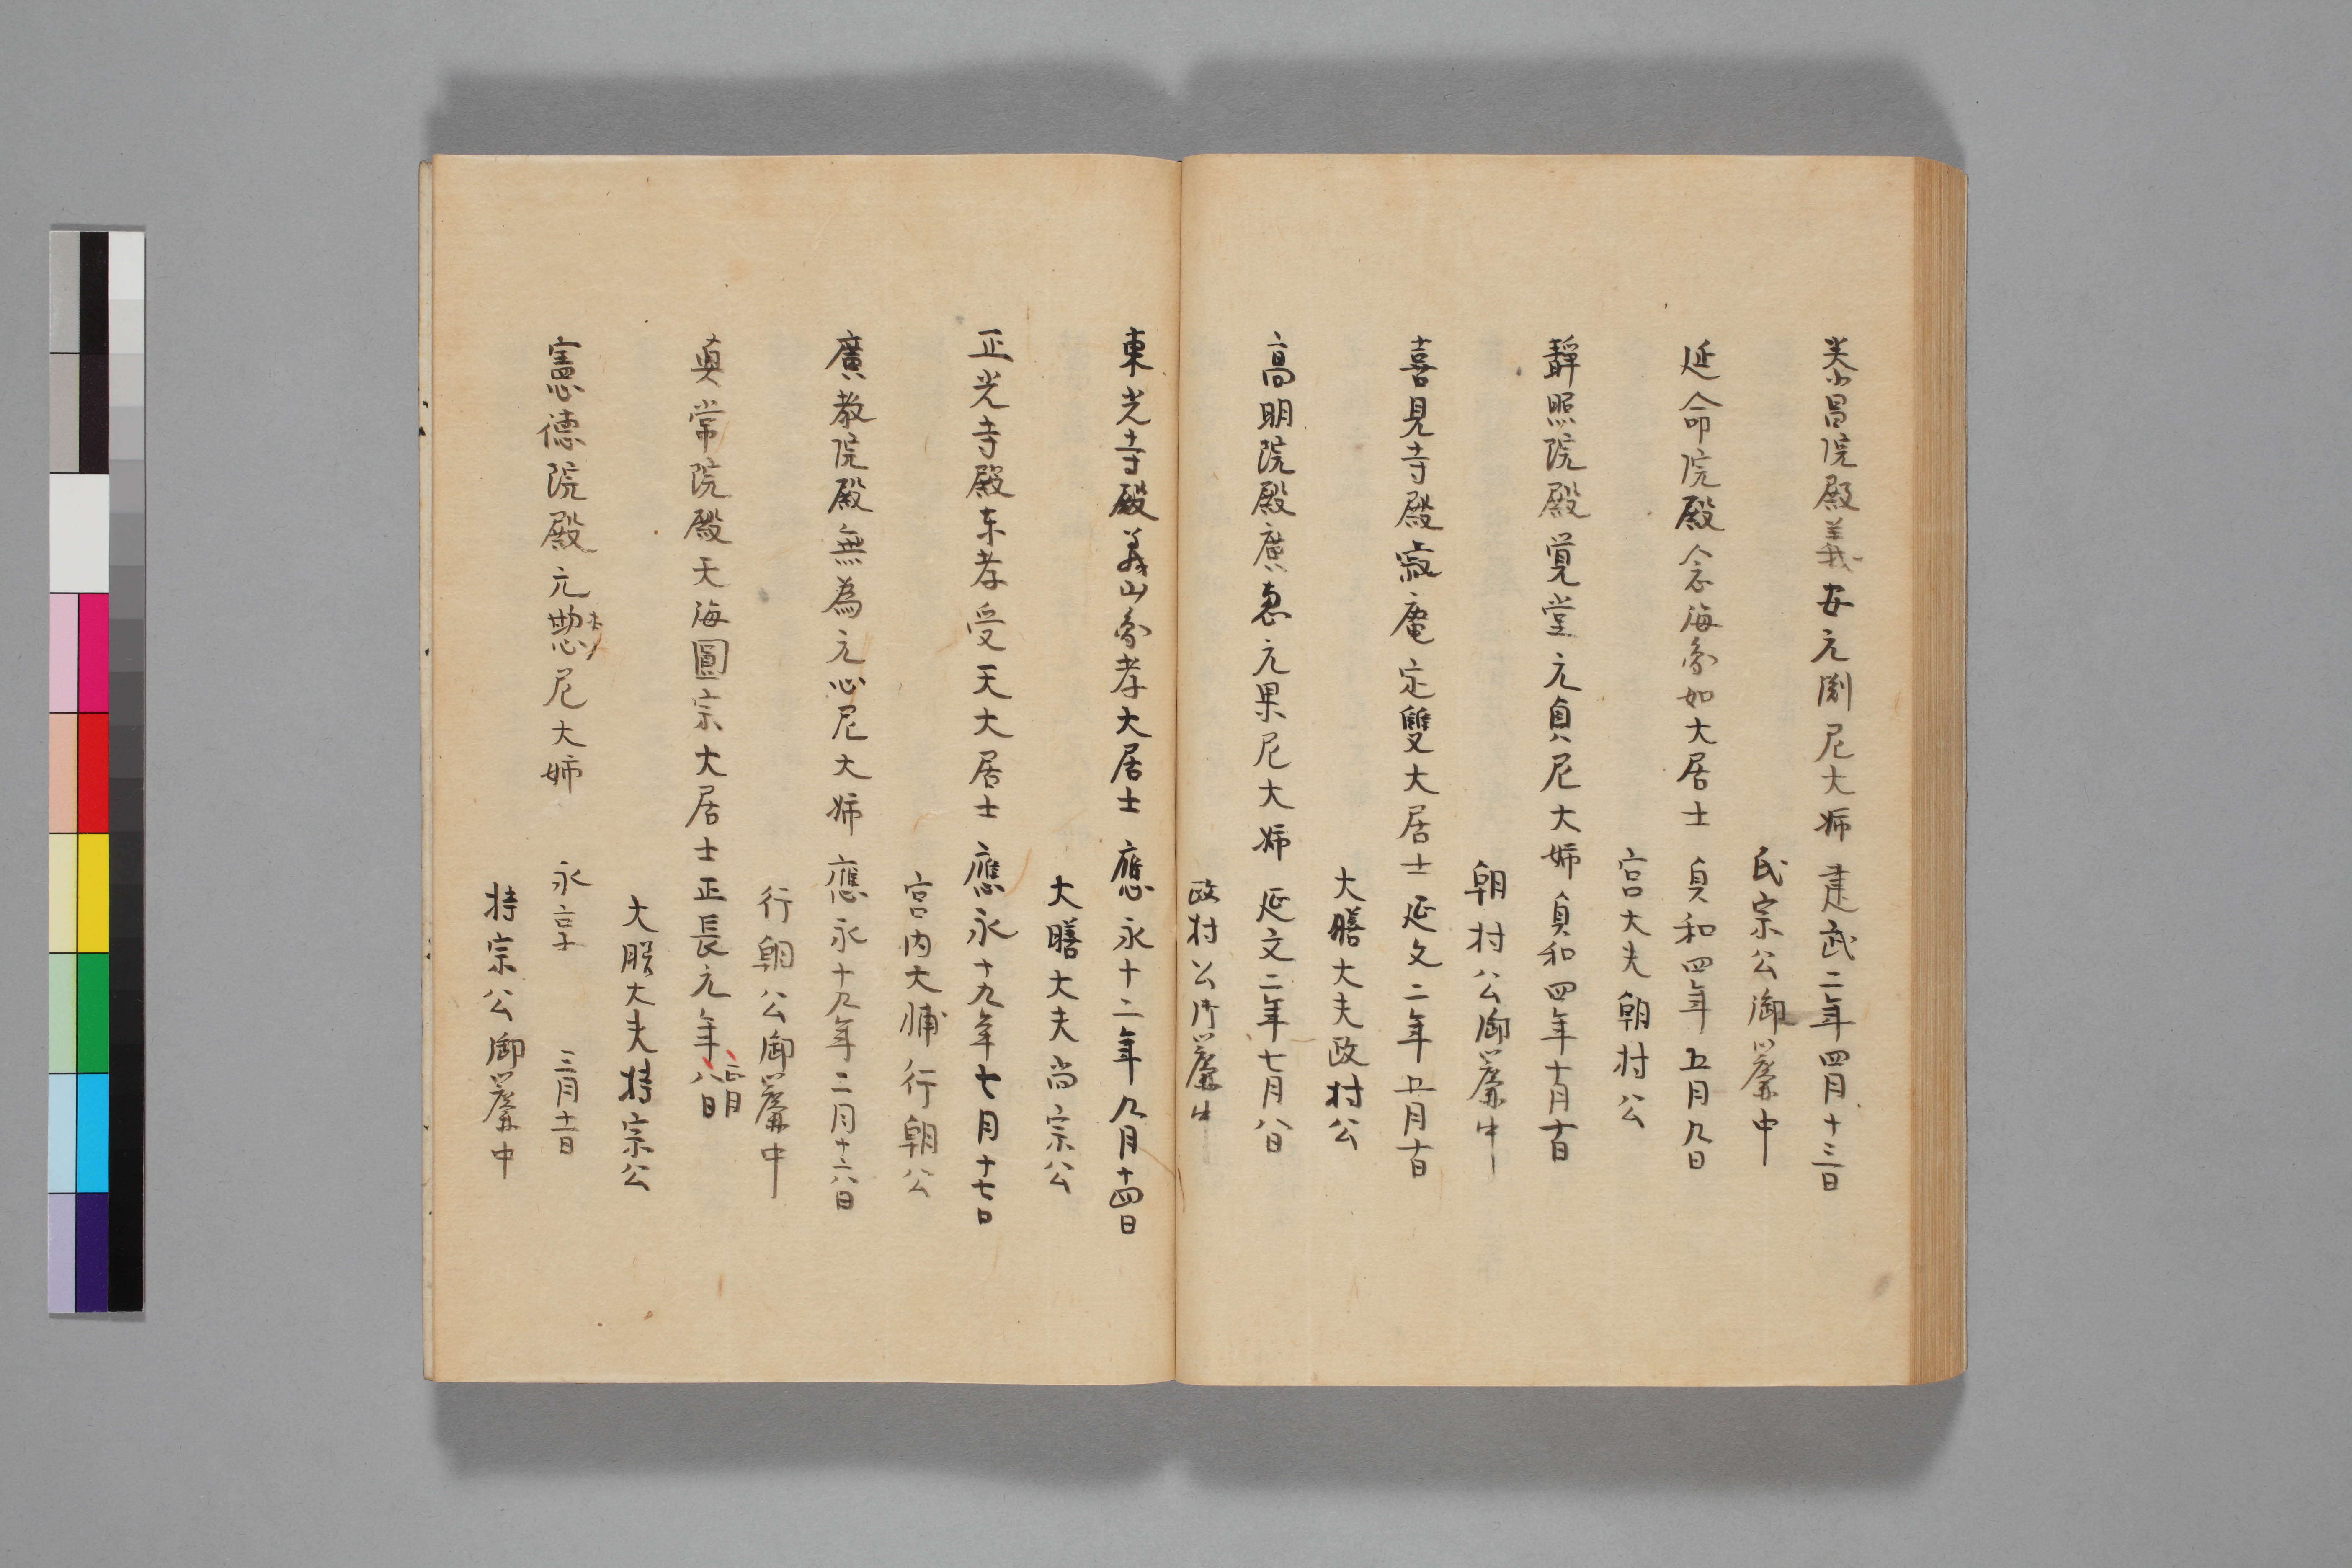 昌院殿義安元渕尼大姉 建武二年四月十三日
氏宗公御簾中
延命院殿念海家如大居士 貞和四年五月九日
宮大夫朝村公
静照院殿覚堂元貞尼大姉 貞和四年十月十日
朝村公御簾中
喜見寺殿寂庵定雙大居士 延文二年五月十日
大膳大夫政村公
高明院殿廣恵元果尼大姉 延文二年七月八日
政村公御簾中
東光寺殿義山家孝大居士 應永十二年九月十四日
大膳大夫尚宗公
正光寺殿东孝受天大居士 應永十九年七月十七日
宮内大輔行朝公
廣教院殿無為元心尼大姉 應永十九年二月十六日
行朝公御簾中
真常院殿天海圓宗大居士 正長元年正月八日
大膳大夫持宗公
憲徳院殿元尼大姉 永享 三月十一日
持宗公御簾中